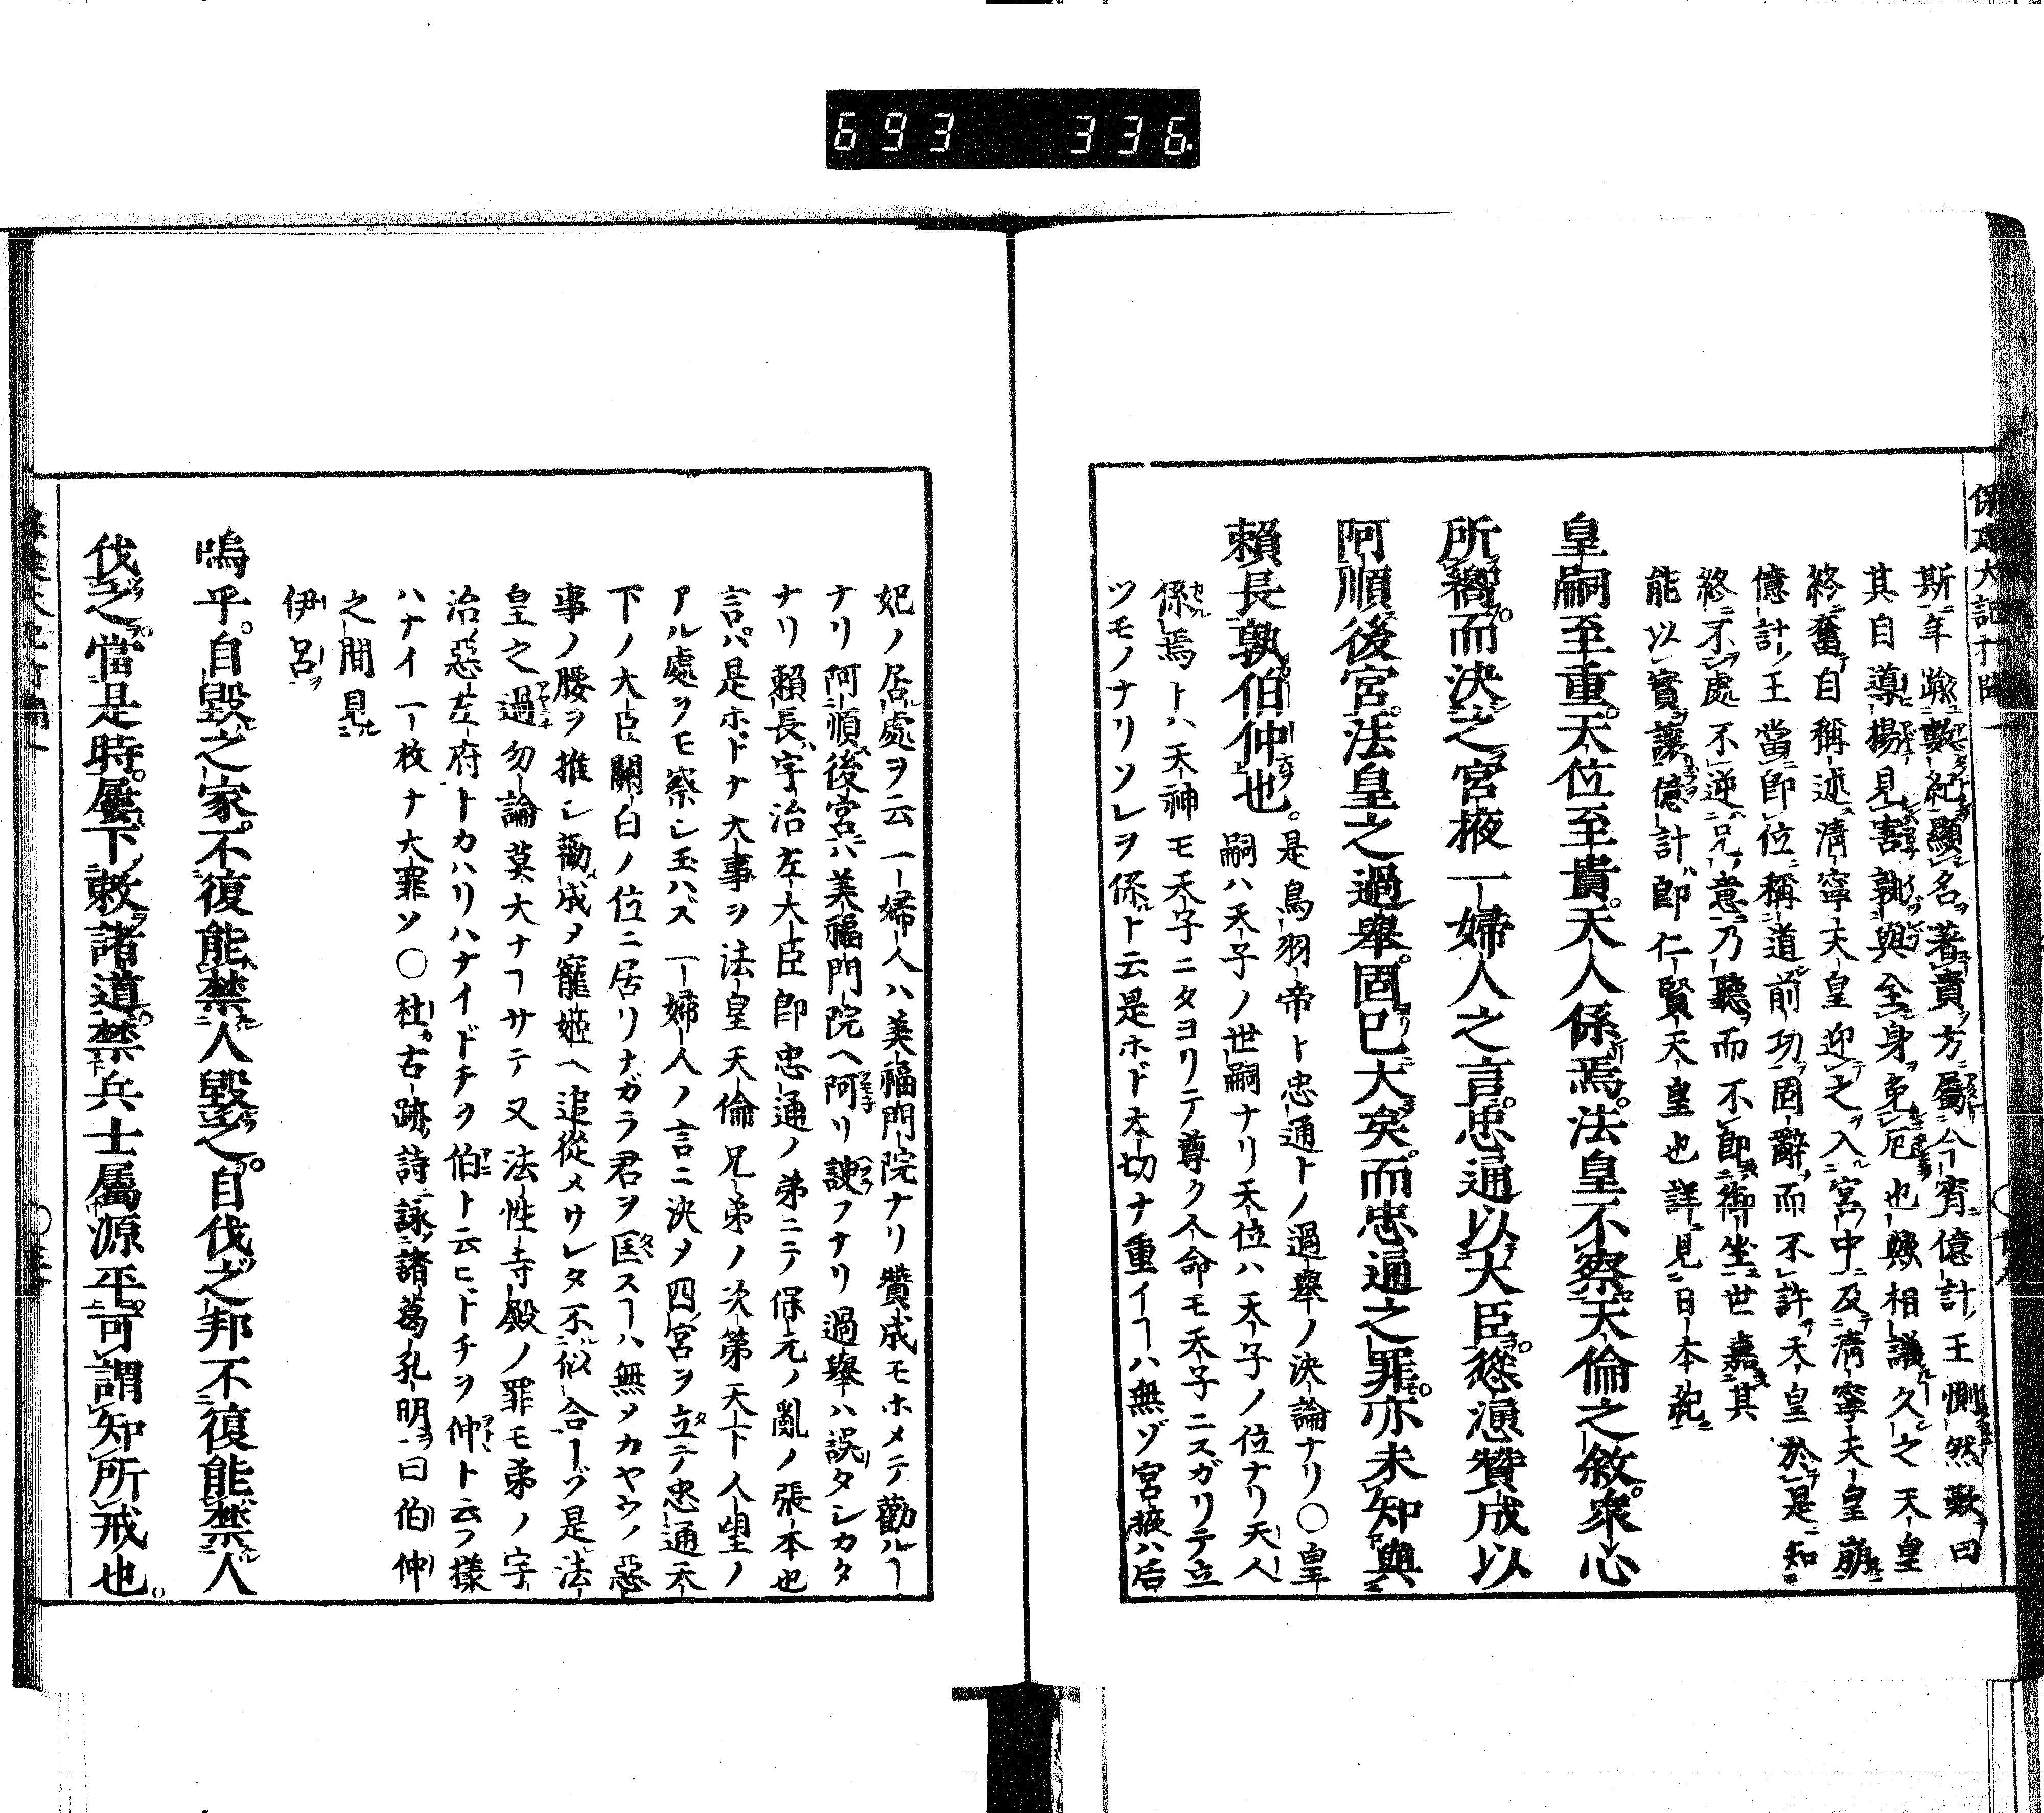 693 336
保建大記打聞一
斯年踰數紀顯名著貴方屬今宵億計王惻然歎曰
其自導揚見害孰與全身免厄也歟相議久之天皇
終奮自稱述清寧天皇迎之入宮中及清寧天皇崩
億計王當卽位稱道前功固辭而不許天皇於是知
終不處不逆兄意乃聽而不卽御坐世嘉其
能以實讓億計卽仁賢天皇也詳見日本紀
皇嗣至重天位至貴天人係焉法皇不察天倫之敘衆心
所嚮而決之宮掖一婦人之言忠通以大臣慫慂贊成以
阿順後宮法皇之過擧固已大矣而忠通之罪亦未知與
賴長孰伯仲也
是鳥羽帝ト忠通トノ過擧ノ決論ナリ○皇
嗣ハ天子ノ世嗣ナリ天位ハ天子ノ位ナリ天人
係焉トハ天神モ天子ニタヨリテ尊ク人命モ天子ニスガリテ立
ツモノナリソレヲ係ルト云是ホド大切ナ重イヿハ無ゾ宮掖ハ后
妃ノ居ル處ヲ云一婦人ハ美福門院ナリ贊成モホメテ勸ルヿ
ナリ阿順後宮ハ美福門院ヘ阿リ諛フナリ過擧ハ誤タシカタ
ナリ賴長ハ宇治左大臣卽忠通ノ弟ニテ保元ノ亂ノ張本也
言ハ是ホドナ大事ヲ法皇天倫兄弟ノ次第天下人望ノ
アル處ヲモ察シ玉ハズ一婦人ノ言ニ決メ四宮ヲ立テ忠通天
下ノ大臣關白ノ位ニ居リナガラ君ヲ匡スヿハ無メカヤウノ惡
事ノ腰ヲ推シ勸成メ寵姬ヘ追從メサレタ不似合ヿゾ是法
皇之過勿論莫大ナヿサテ又法性寺殿ノ罪モ弟ノ宇
治ノ惡左府トカハリハナイドチヲ伯ト云ヒドチヲ仲ト云フ樣
ハナイ一枚ナ大罪ソ○杜カ古跡詩ニ詠諸葛孔明ヲ曰伯仲
之間見
伊呂
嗚乎自毀之家不復能禁人毀之自伐之邦不復能禁人
伐之當是時屢下敕諸道禁兵士屬源平可謂知所戒也